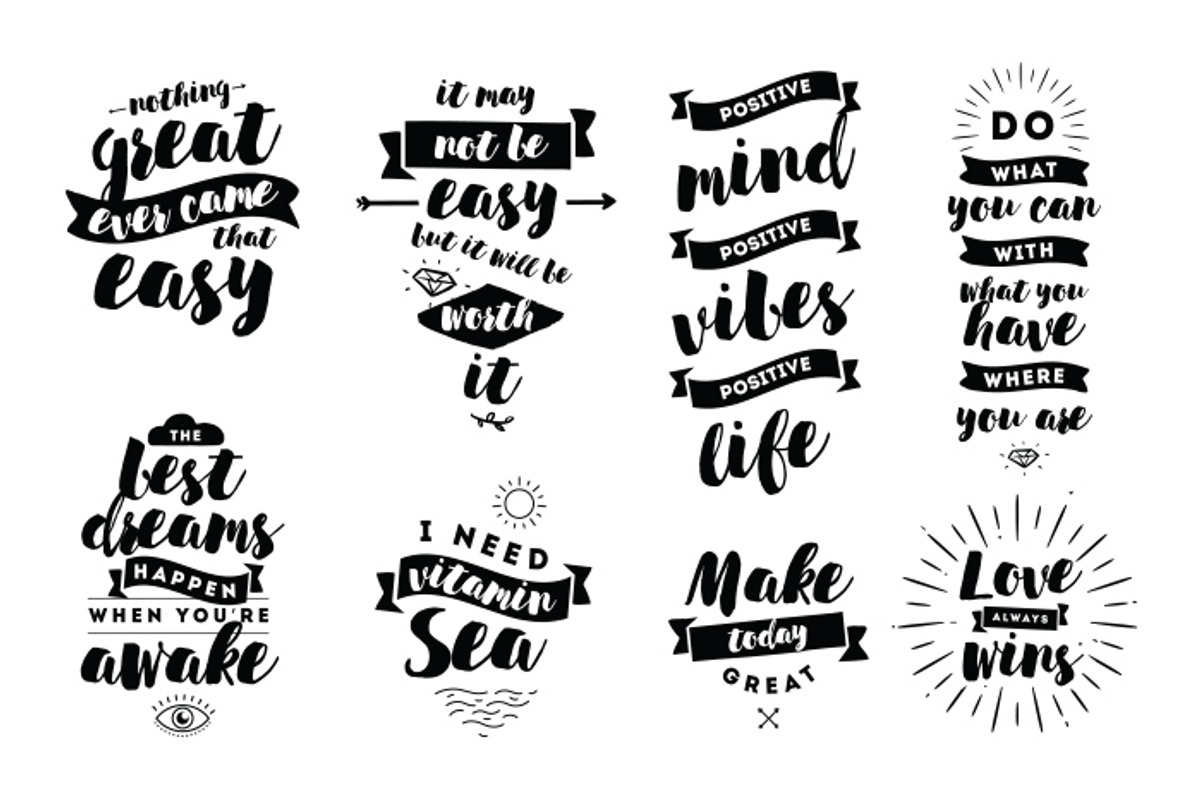 nothing
great
ever came
that
easy
it may
not be
easy
but it will be
worth
it
POSITIVE
mind
POSITIVE
vibes
POSITIVE
life
DO
WHAT
you can
WITH
what you
have
WHERE
you are
THE
best
dreams
HAPPEN
WHEN YOU'RE
awake
I NEED
vitamin
Sea
Make
today
GREAT
Love
ALWAYS
wins